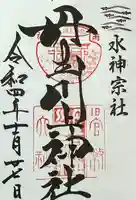 水神宗社
丹生川上神社
令和四年十月廿七日